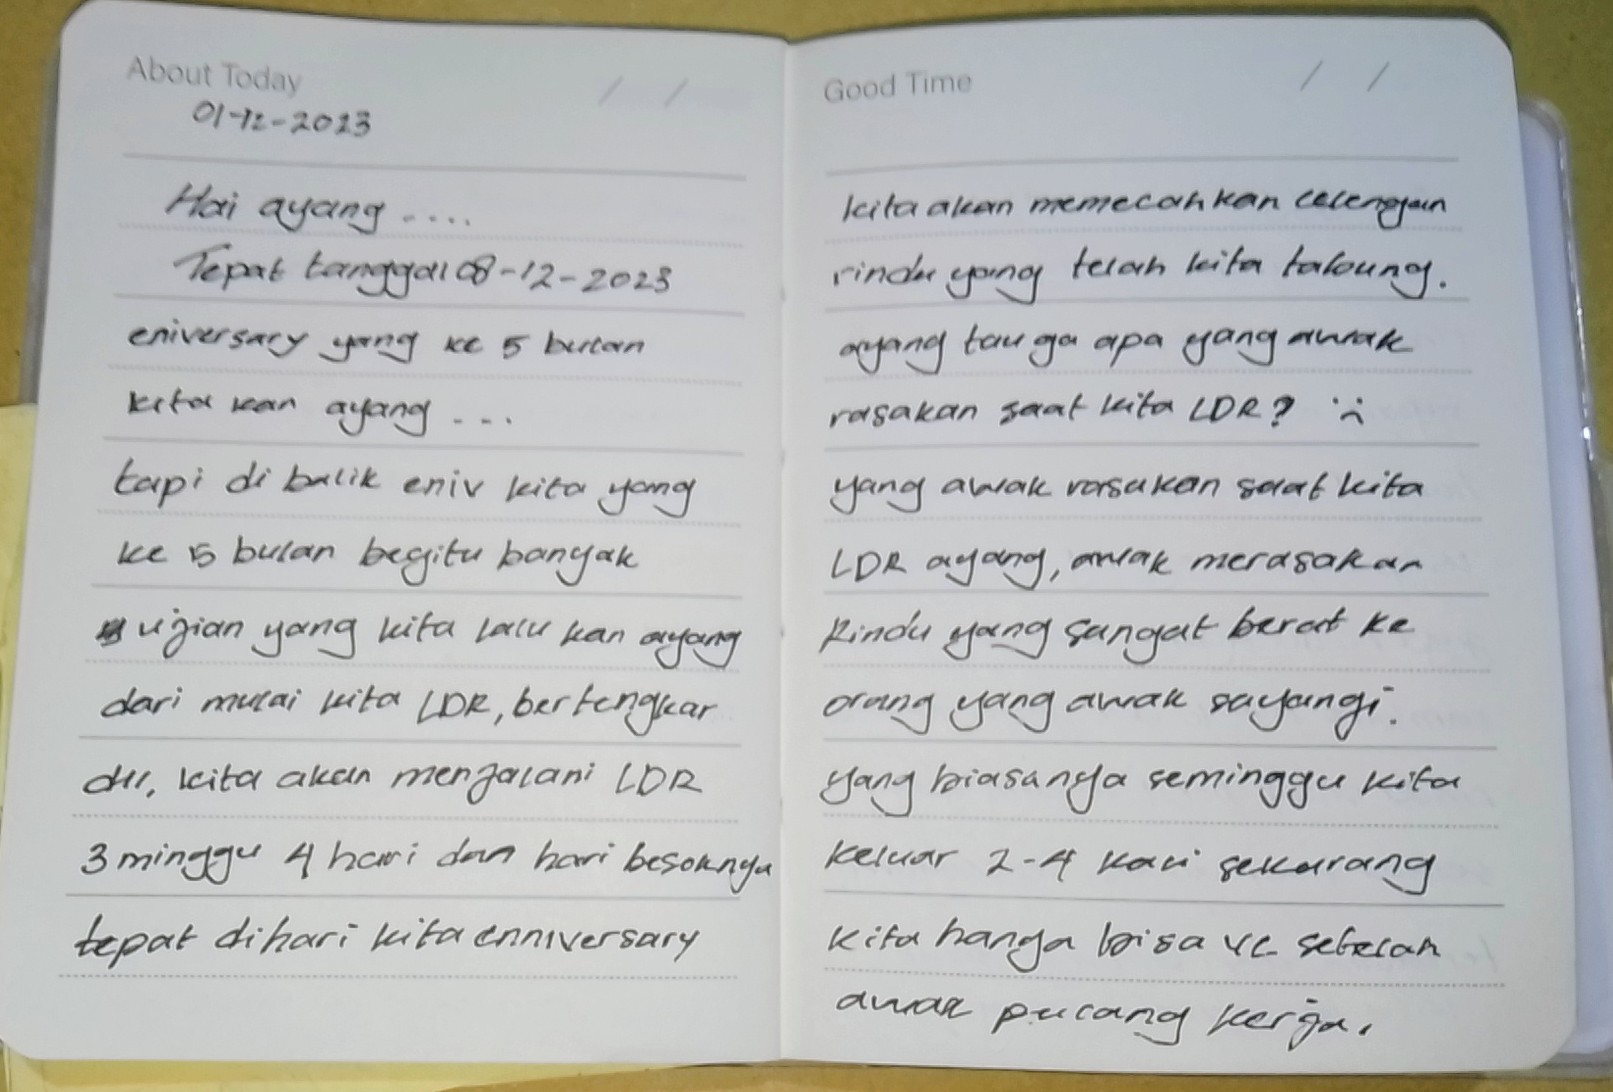 About Today / /
01-12-2023
Hai ayang ....
Tepat tanggal 08-12-2023
eniversary yang ke 5 bulan
kita kan ayang ...
tapi di balik eniv kita yang
ke 5 bulan begitu banyak
ujian yang kita lalu kan ayang
dari mulai kita LDR, bertengkar
dll, kita akan menjalani LDR
3 minggu 4 hari dan hari besoknya
tepat dihari kita enniversary
Good Time / /
kita akan memecahkan celengan
rindu yang telah kita tabung.
ayang tau ga apa yang awak
rasakan saat kita LDR? :(
yang awak rasakan saat kita
LDR ayang, awak merasakan
Rindu yang sangat berat ke
orang yang awak sayangi.
yang biasanya seminggu kita
keluar 2-4 kali sekarang
kita hanya bisa VC setelah
awak pulang kerja.